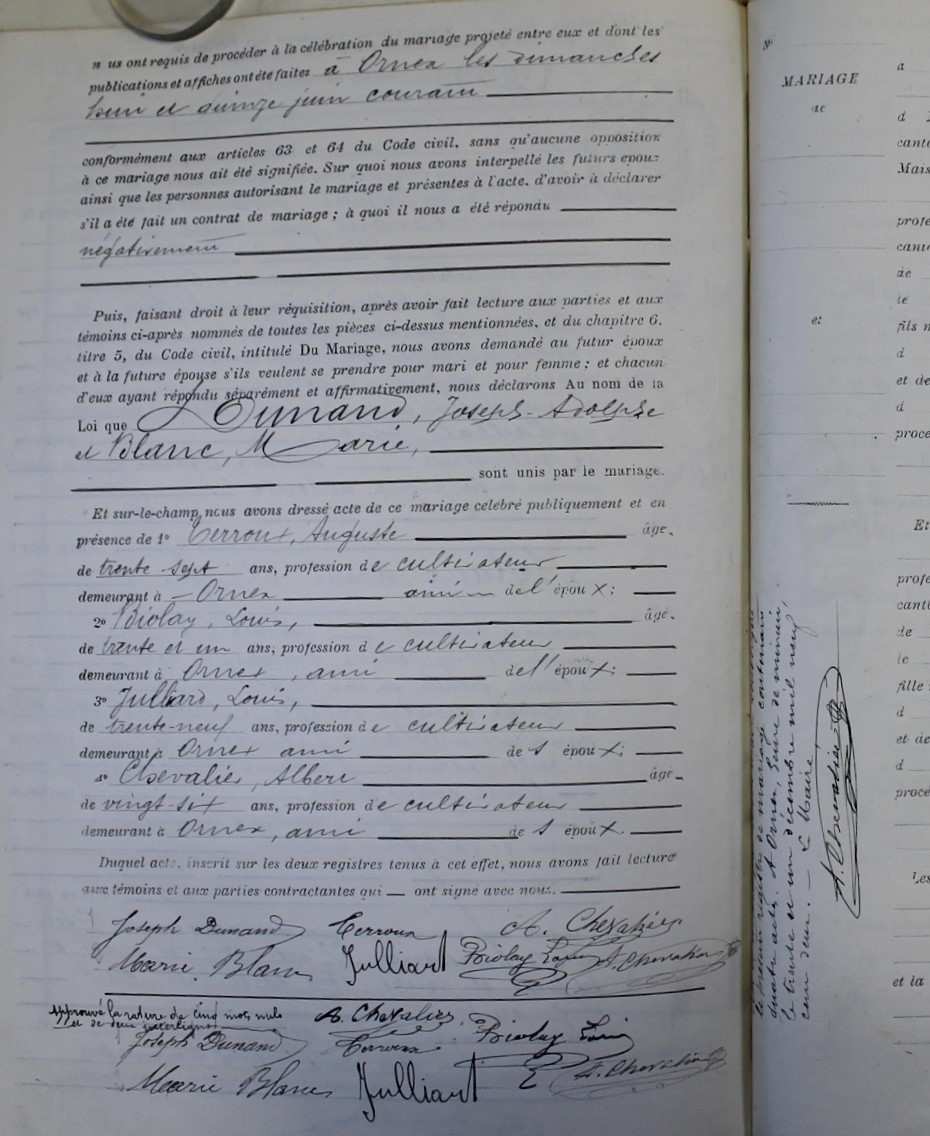 nous ont requis de procéder à la célébration du mariage projeté entre eux et dont les
publications et affiches ont été faites à Ornex les dimanches
huit et quinze juin courant
conformément aux articles 63 et 64 du Code civil, sans qu'aucune opposition
à ce mariage nous ait été signifiée. Sur quoi nous avons interpellé les futurs époux
ainsi que les personnes autorisant le mariage et présentes à l'acte, d'avoir à déclarer
s'il a été fait un contrat de mariage ; à quoi il nous a été répondu
négativement
Puis, faisant droit à leur réquisition, après avoir fait lecture aux parties et aux
témoins ci-après nommés de toutes les pièces ci-dessus mentionnées, et du chapitre 6,
titre 5, du Code civil, intitulé Du Mariage, nous avons demandé au futur époux
et à la future épouse s'ils veulent se prendre pour mari et pour femme ; et chacun
d'eux ayant répondu séparément et affirmativement, nous déclarons Au nom de la
Loi que Dunand, Joseph-Adolphe
et Blanc, Marie,
sont unis par le mariage.
Et sur-le-champ, nous avons dressé acte de ce mariage célébré publiquement et en
présence de 1° Terroux, Auguste âgé
de trente sept ans, profession de cultivateur
demeurant à Ornex ami de l'époux ;
2° Biolay, Louis, âgé
de trente et un ans, profession de cultivateur
demeurant à Ornex, ami de l'époux ;
3° Julliard, Louis,
de trente-neuf ans, profession de cultivateur
demeurant à Ornex ami de l époux ;
4° Chevalier, Albert âgé
de vingt-six ans, profession de cultivateur
demeurant à Ornex, ami de l époux.
Duquel acte, inscrit sur les deux registres tenus à cet effet, nous avons fait lecture
aux témoins et aux parties contractantes qui ont signé avec nous.
Joseph Dunand Terroux A. Chevalier
Marie Blanc Julliard Biolay Louis A. Chevalier
Approuvé la rature de cinq mots nuls
et de deux interlignes
A. Chevalier Biolay Louis
Joseph Dunand Terroux
Marie Blanc Julliard A. Chevalier
le présent registre de mariage contenant
quatre actes. A Ornex, l'heure de minuit,
le trente et un décembre mil neuf
cent deux. — Le Maire
A. Chevalier
N°
MARIAGE
de
et
a
d
canto
Mais
profe
canto
de
le
fils m
d
et de
d
proce
Et
profe
canto
de
le
fille
d
et de
d
proce
Les
et la